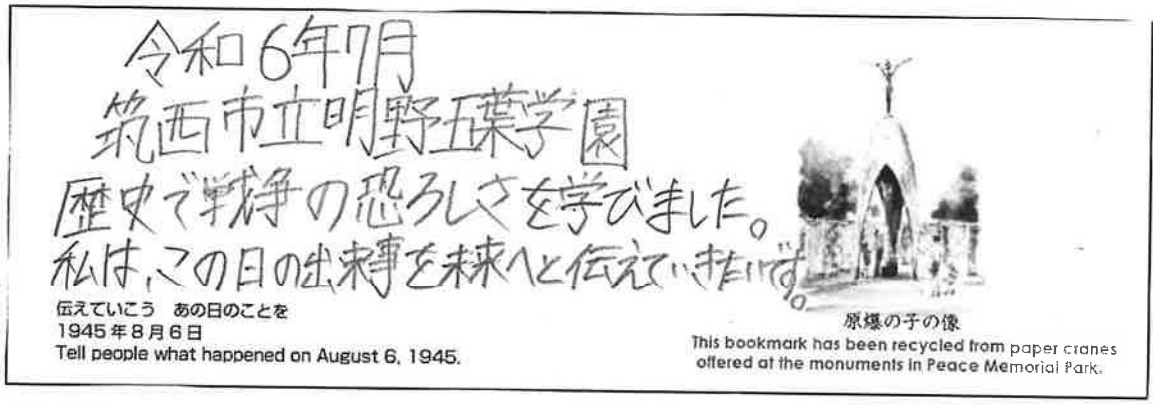 令和6年7月
筑西市立明野五葉学園
歴史で戦争の恐ろしさを学びました。
私は、この日の出来事を未来へと伝えていきたいです。
伝えていこう　あの日のことを
1945年8月6日
Tell people what happened on August 6, 1945.
原爆の子の像
This bookmark has been recycled from paper cranes
offered at the monuments in Peace Memorial Park.